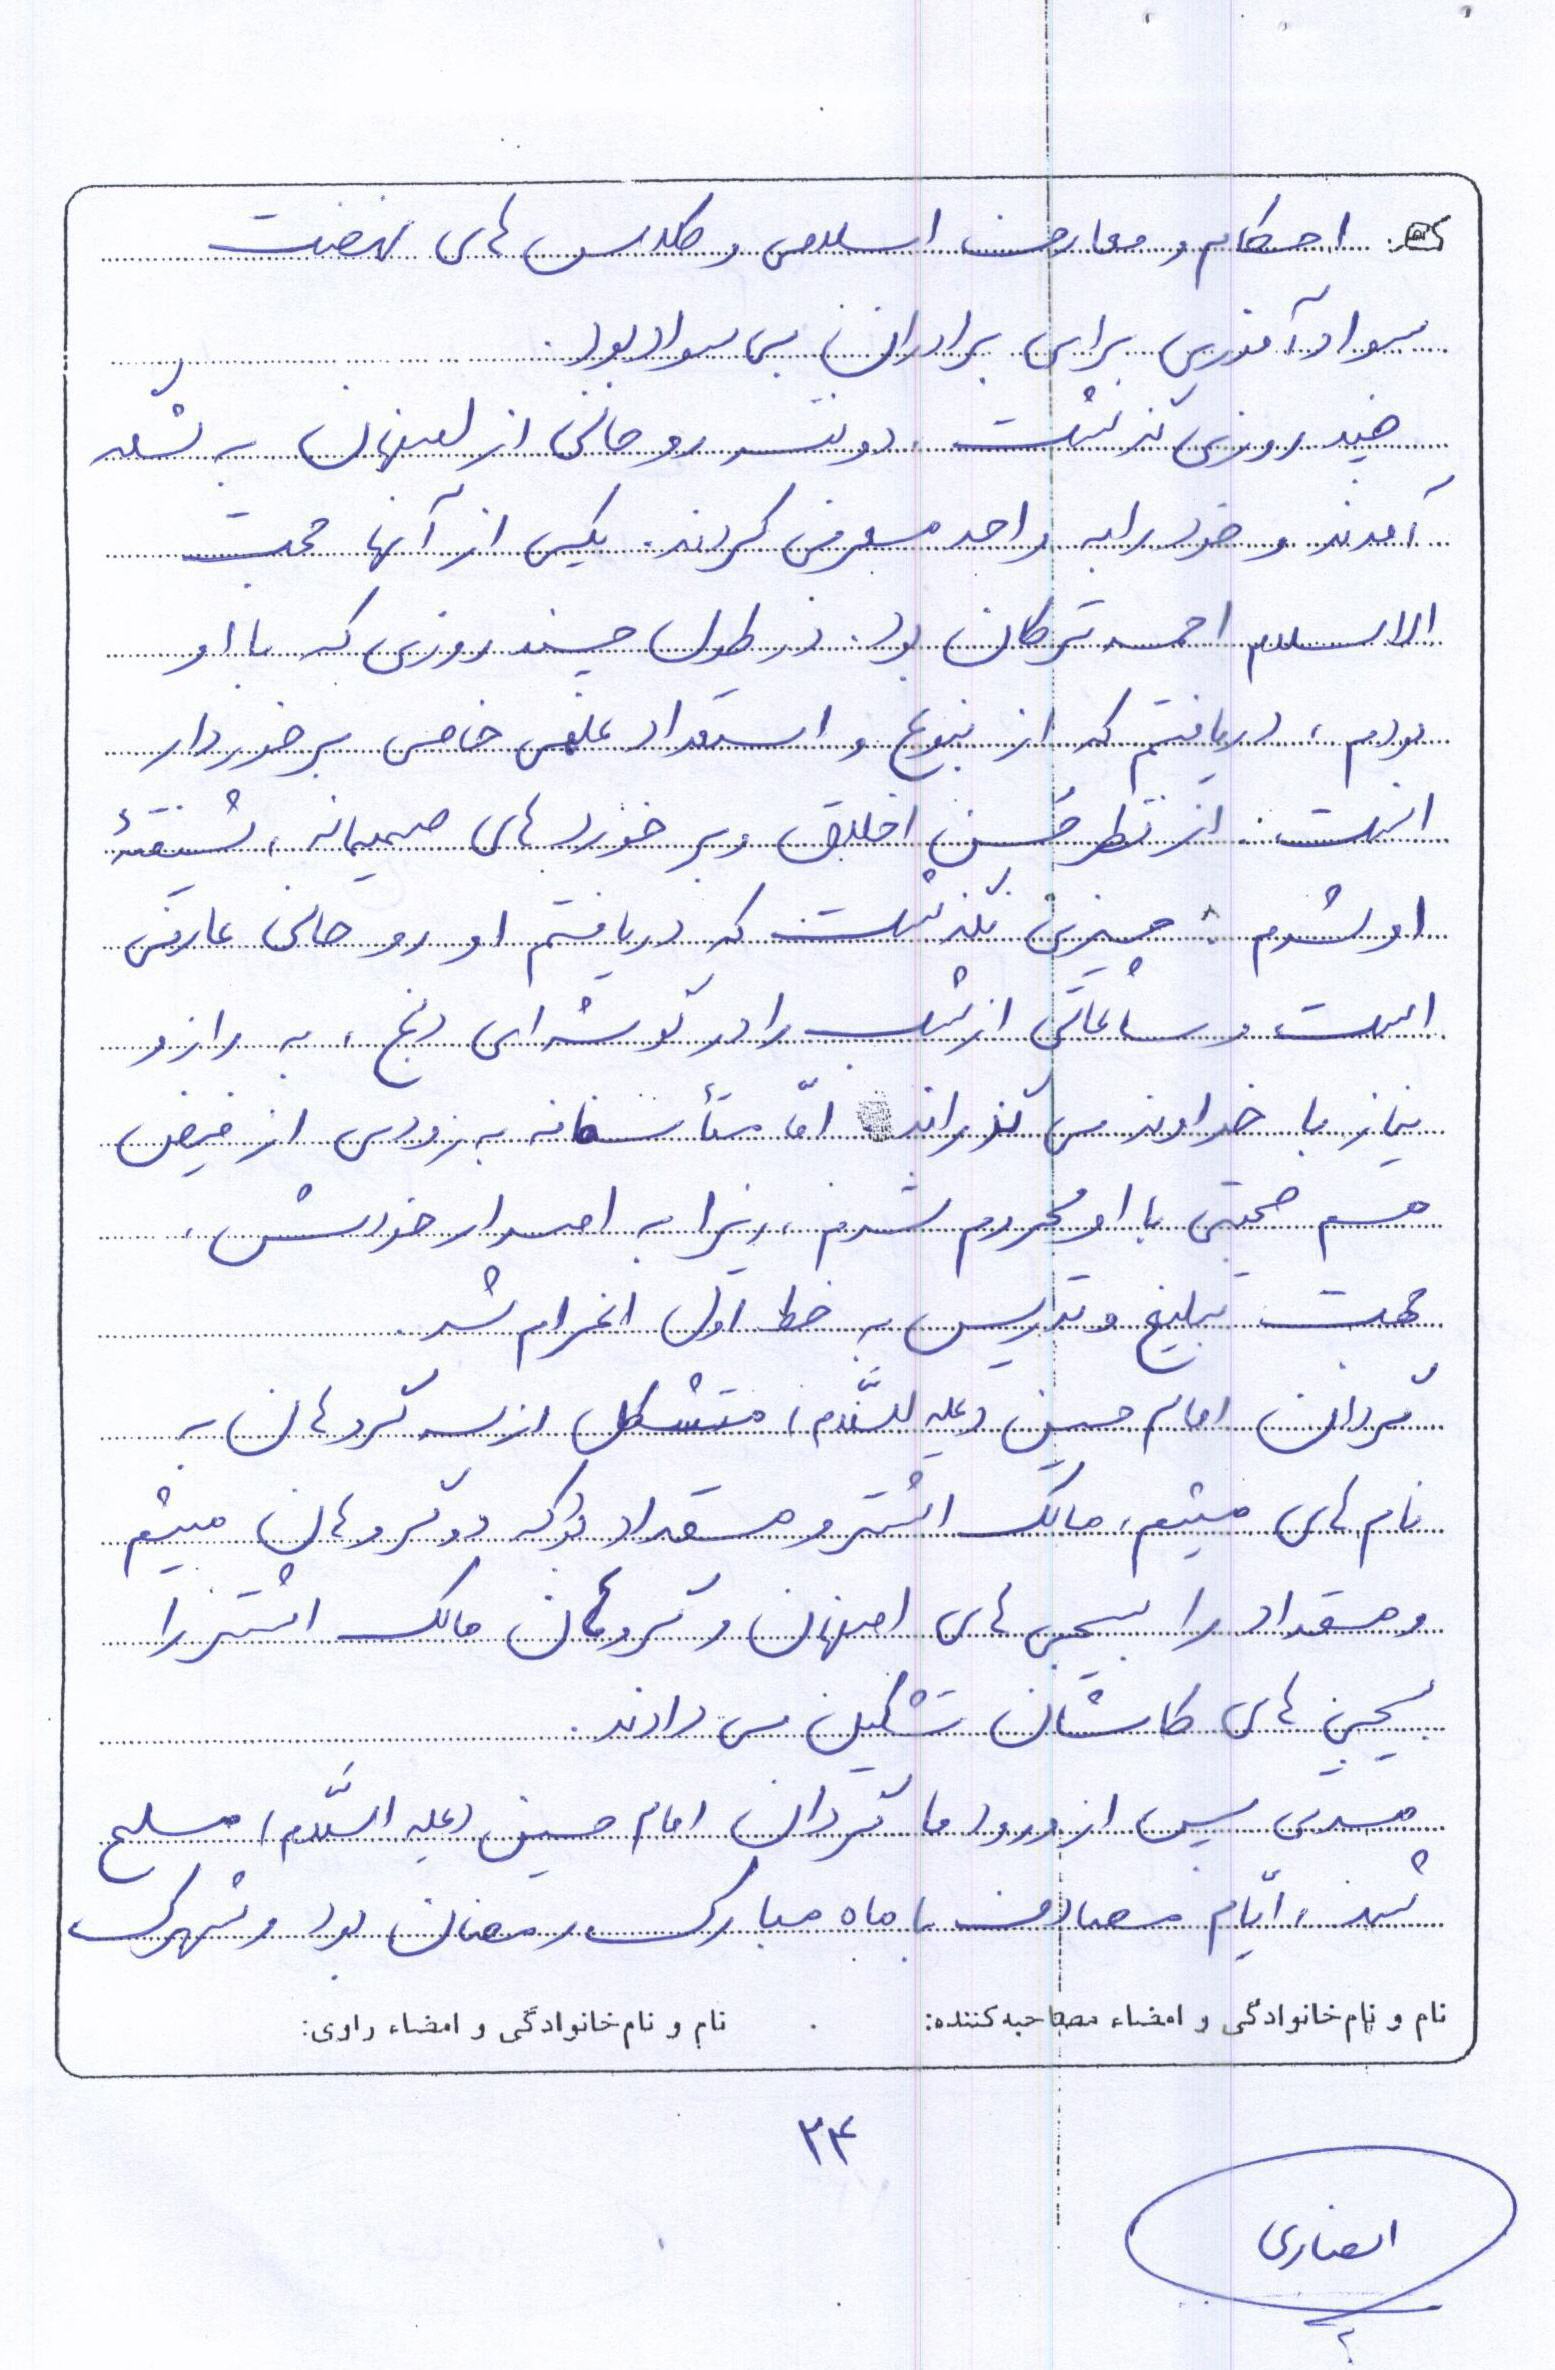 احکام و معارف اسلامی و کلاس های نهضت
سوادآموزی برای برادران بی سواد بود.
چند روزی گذشت، دو نفر روحانی از اصفهان به نقده
آمدند و خود را به واحد معرفی کردند. یکی از آنها حجت
الاسلام احمد ترکان بود. در طول چند روزی که با او
بودم، دریافتم که از نبوغ و استعداد علمی خاصی برخوردار
است. از نظر حُسن اخلاق و برخوردهای صمیمانه، شیفتهٔ
او شدم. چیزی نگذشت که دریافتم او روحانی عارفی
است و ساعاتی از شب را در گوشه ای دنج، به راز و
نیاز با خداوند می گذراند. امّا متأسفانه به زودی از فیض
هم صحبتی با او محروم شدم، زیرا به اصرار خودش،
جهت تبلیغ و تدریس به خط اول اعزام شد.
گردان امام حسین (علیه السَّلام) متشکل از سه گروهان به
نام های میثم، مالک اشتر و مقداد بود که دو گروهان میثم
و مقداد را بسیجی های اصفهان و گروهان مالک اشتر را
بسیجی های کاشان تشکیل می دادند.
مدتی پس از ورود ما گردان امام حسین (علیه السَّلام) مسلح
شد، ایّام مصادف با ماه مبارک رمضان بود و شهرک
نام و نام خانوادگی و امضاء مصاحبه کننده:
نام و نام خانوادگی و امضاء راوی:
۲۴
انصاری